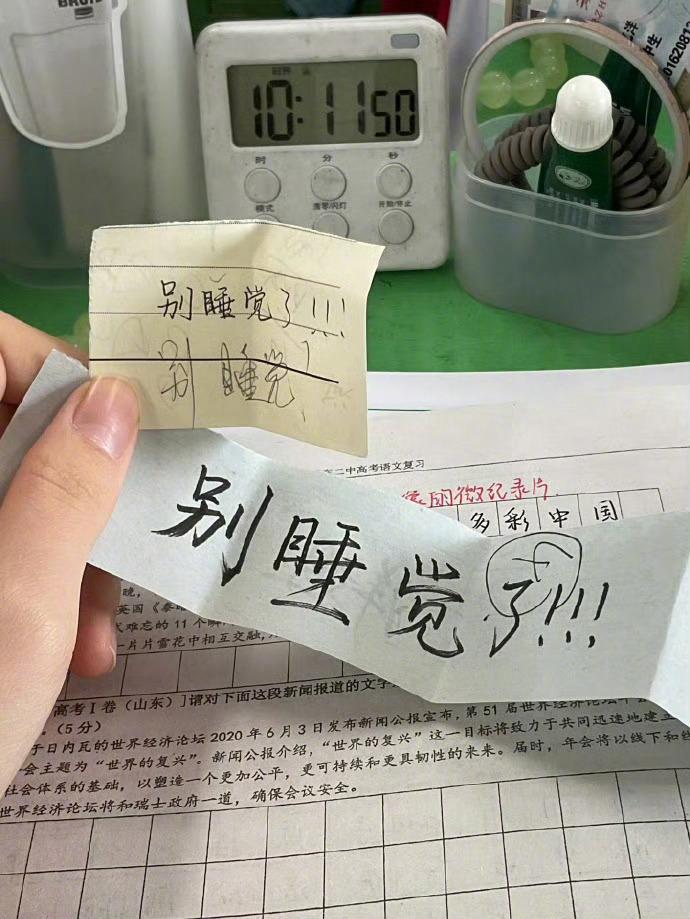 10:11 50
时 分 秒
模式 清零/闪灯 开始/停止
别睡觉了!!!
别睡觉
二中高考语文复习
微纪录片
多彩中国
别睡觉了!!!
晚,
英国《泰晤
难忘的11个瞬
一片片雪花中相互交融,
高考Ⅰ卷(山东)]请对下面这段新闻报道的文字
(5分)
于日内瓦的世界经济论坛2020年6月3日发布新闻公报宣布,第51届世界经济论坛年会
会主题为“世界的复兴”。新闻公报介绍,“世界的复兴”这一目标将致力于共同迅速地建立
社会体系的基础,以塑造一个更加公平,更可持续和更具韧性的未来。届时,年会将以线下和线
世界经济论坛将和瑞士政府一道,确保会议安全。